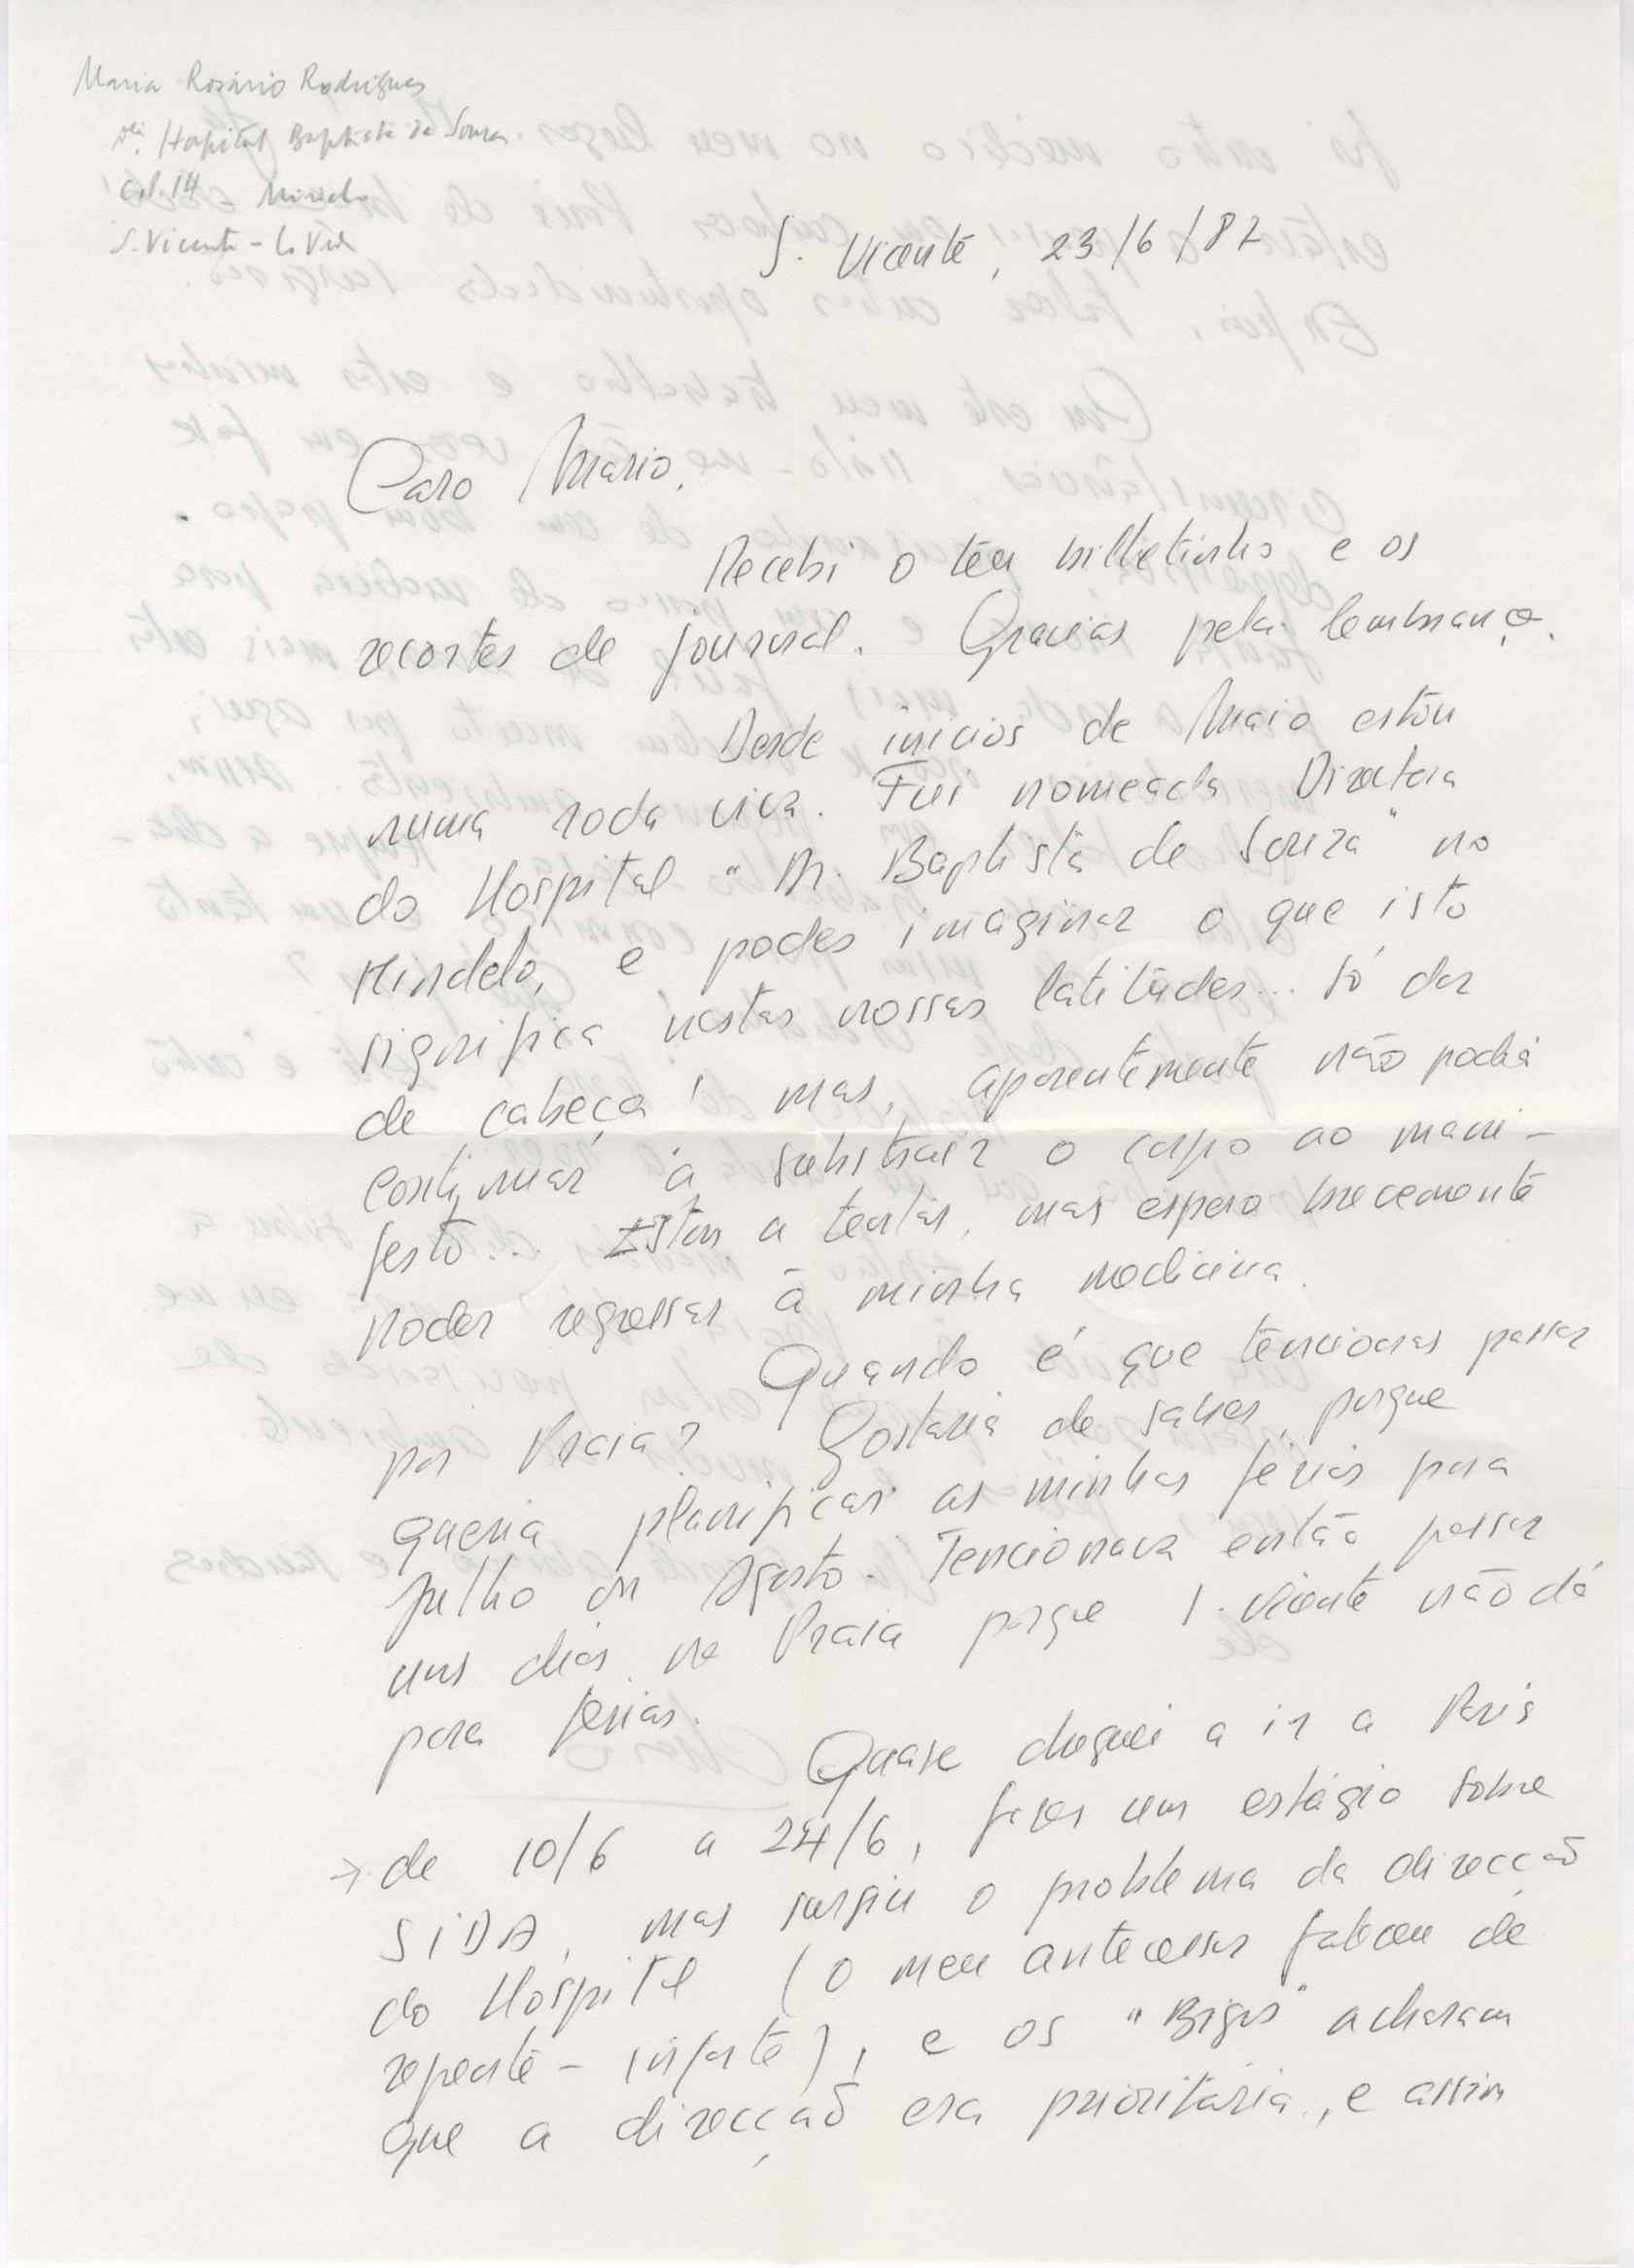 Maria Rosário Rodrigues
Hospital Baptista de Sousa
C.P. 14 - Mindelo
S. Vicente - C. Verde
S. Vicente, 23/6/87
Caro Mário,
Recebi o teu bilhetinho e os
recortes de journal. Gracias pela lembrança.
Desde inicios de Maio estou
numa roda viva. Fui nomeada Directora
do Hospital "Dr. Baptista de Souza" no
Mindelo, e podes imaginar o que isto
significa nestas nossas latitudes... Só dor
de cabeça! Mas, aparentemente não podia
continuar a substrair o corpo ao mani-
festo... Estou a tentar, mas espero brevemente
poder regressar à minha medicina.
Quando é que tencionas passar
por Praia? Gostaria de saber, porque
queria planificar as minhas férias para
Julho ou Agosto. Tencionava então passar
uns dias na Praia porque S. Vicente não dá
para férias.
Quase cheguei a ir a Paris
→ de 10/6 a 24/6, fazer um estágio sobre
SIDA, mas surgiu o problema da direcção
do Hospital (o meu antecessor faleceu de
repente - infarte), e os "Bigs" acharam
que a direcção era prioritária, e assim